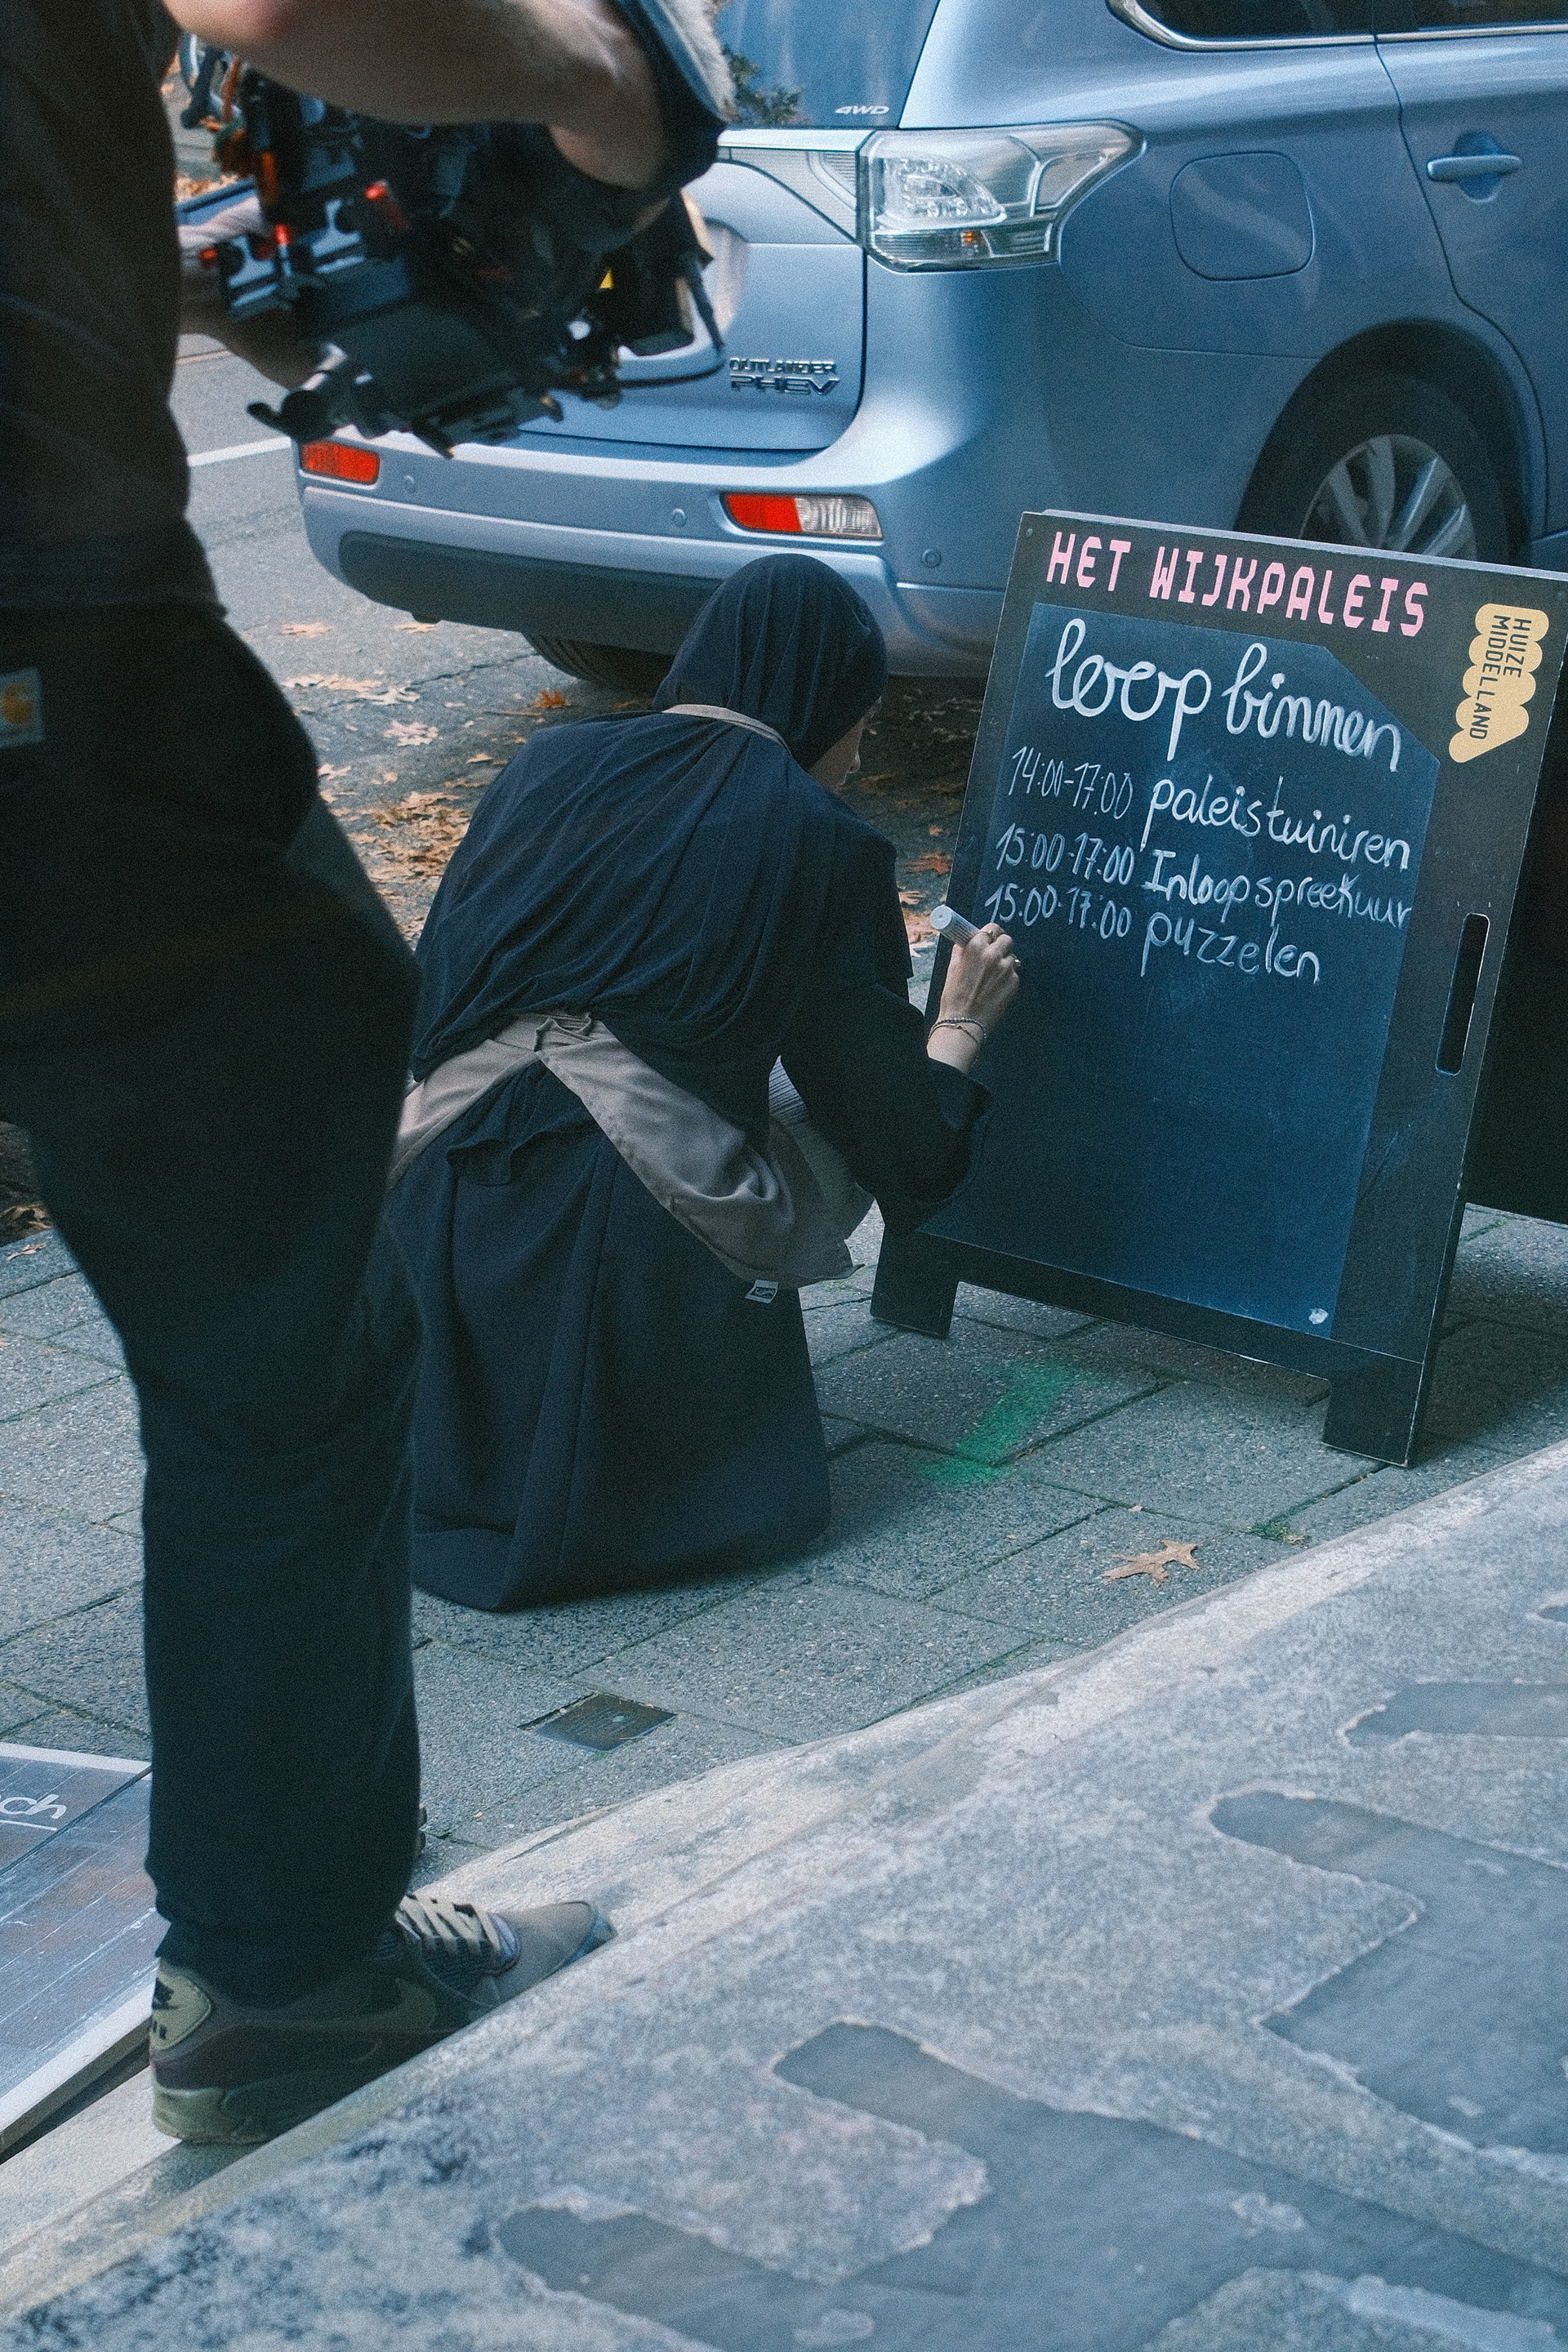 4WD
OUTLANDER
PHEV
HET WIJKPALEIS
HUIZE
MIDDELLAND
loop binnen
14:00-17:00 paleistuiniren
15:00-17:00 Inloopspreekuur
15:00-17:00 puzzelen